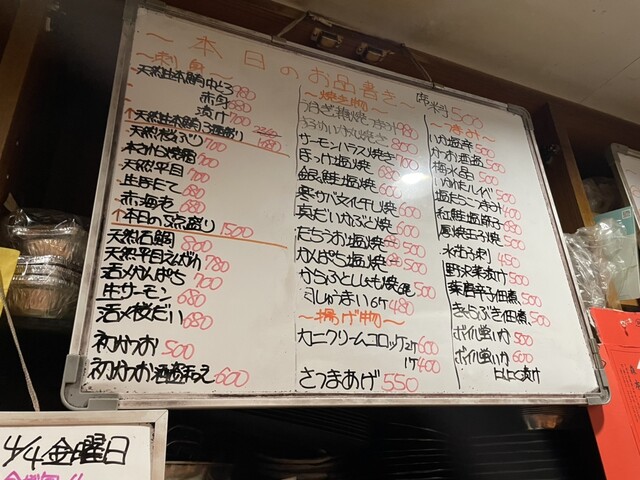 ～本日のお品書き～
席料 500
～刺身～
天然生本鮪中とろ 780
赤身 680
漬け 700
↑天然生本鮪3種盛り 1680
天然桜ぶり 700
天然平目 700
生ほたて 680
赤海老 680
↑本日の5点盛り 1500
天然石鯛 800
天然平目えんがわ 780
活〆かんぱち 700
生サーモン 680
活〆桜だい 680
初かつお 500
初かつお酒盗和え 600
～焼き物～
サーモンハラス焼き 700
ほっけ塩焼 680
銀鮭塩焼 600
寒サバ文化干し焼 600
真だいかぶと焼 600
たちうお塩焼 500
かんぱち塩焼 500
からふとししゃも焼 500
すしゅまい 6ヶ 480
～揚げ物～
カニクリームコロッケ 2ヶ 600
1ケ 400
さつまあげ 550
いか塩辛 500
かつお酒盗 500
梅水晶 500
塩たこつまみ 400
紅鮭塩筋子 680
尾焼玉子焼 500
水茄子刺 450
野沢菜漬け 500
葉唐辛子佃煮 500
きゃらぶき佃煮 500
ボイル蛍いか 500
ボイル蛍いか 600
4/4 金曜日